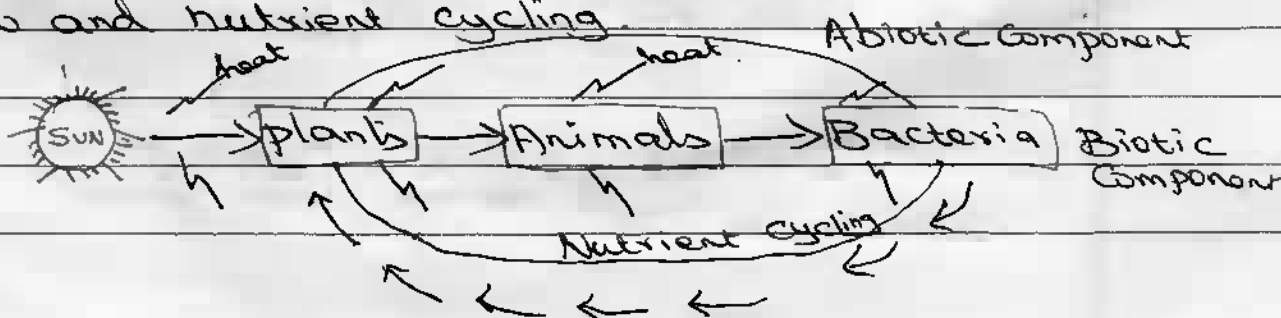 and nutrient cycling.
heat heat. Abiotic Component
SUN plants Animals Bacteria Biotic
Component
Nutrient cycling